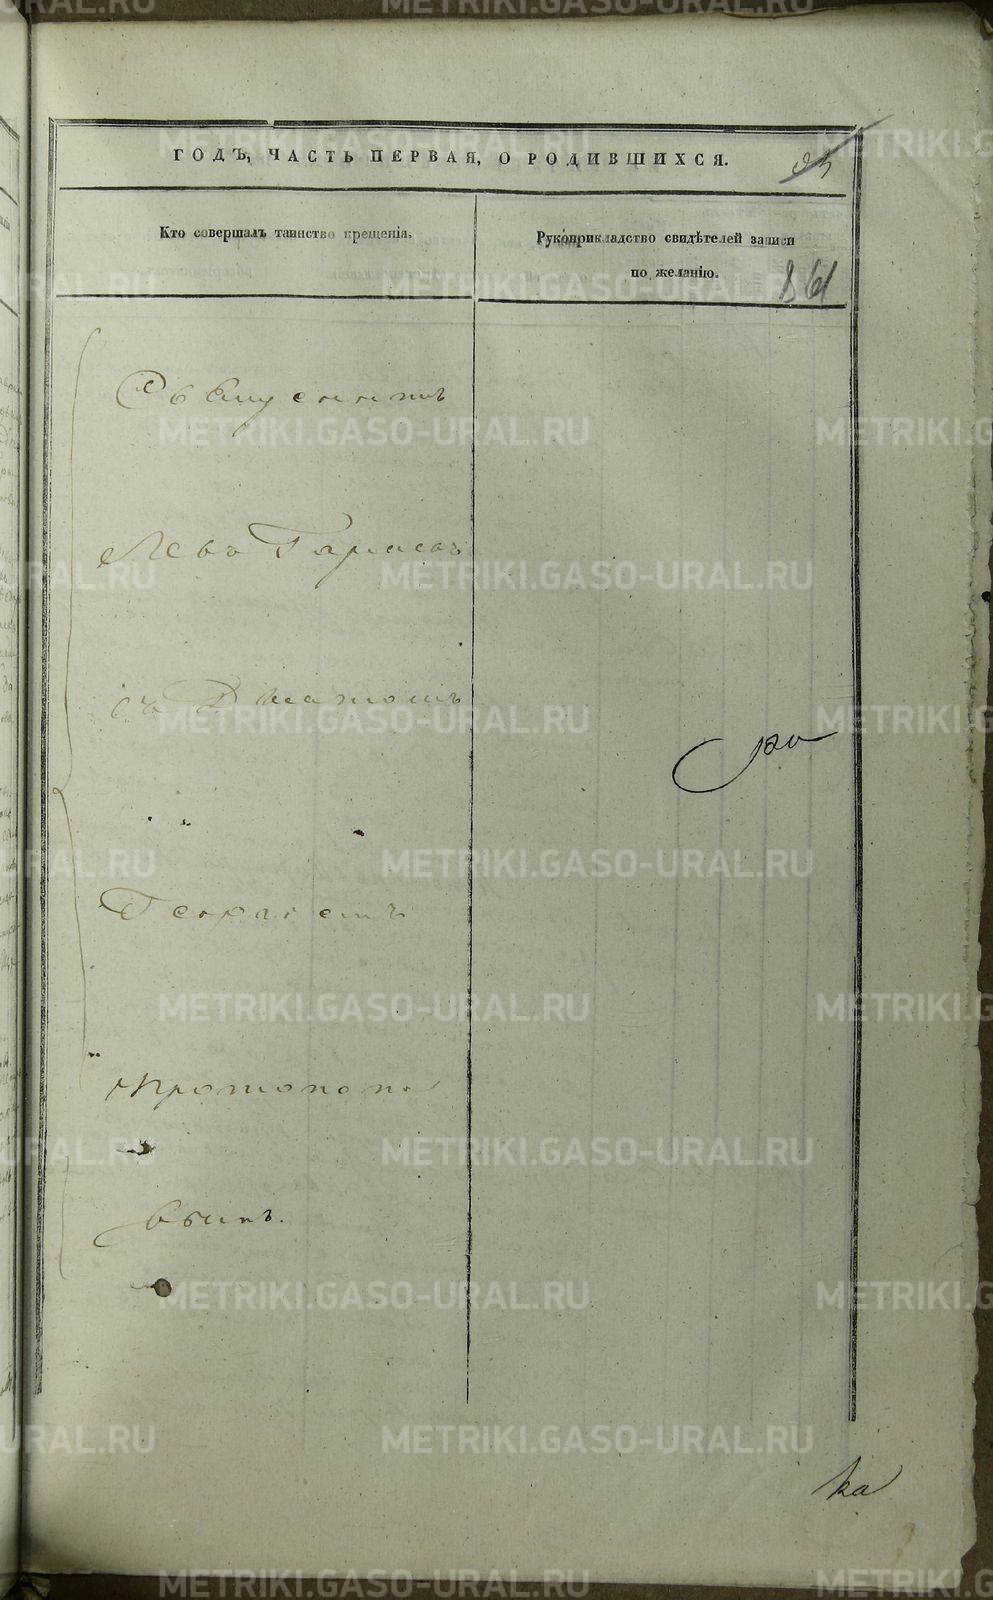 ГОДЪ, ЧАСТЬ ПЕРВАЯ, О РОДИВШИХСЯ.
Кто совершалъ таинство крещенія.
Рукоприкладство свидѣтелей записи
по желанію.
861
Священникъ
Левъ Тарасовъ
съ Дьячкомъ
Георгіемъ
Протопопо
вымъ.
METRIKI.GASO-URAL.RU